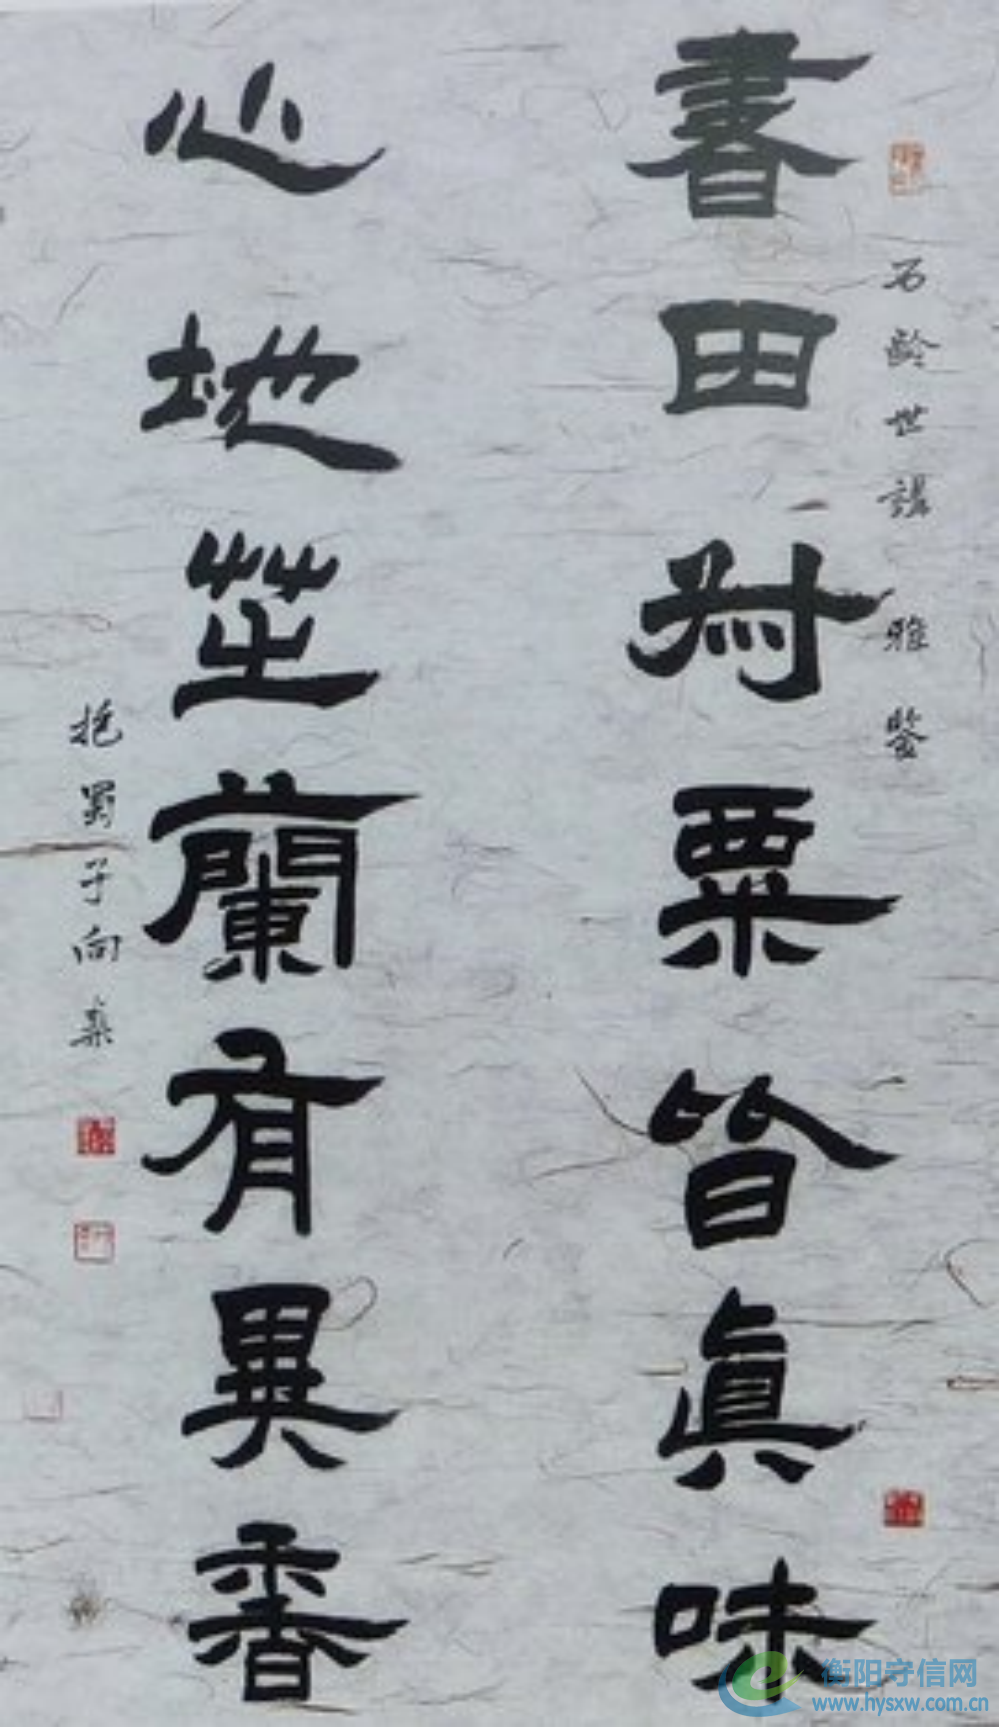 石齡世講雅鑒
書田叔粟皆眞味
心地芝蘭有異香
抱蜀子向燊
衡阳守信网
www.hysxw.com.cn